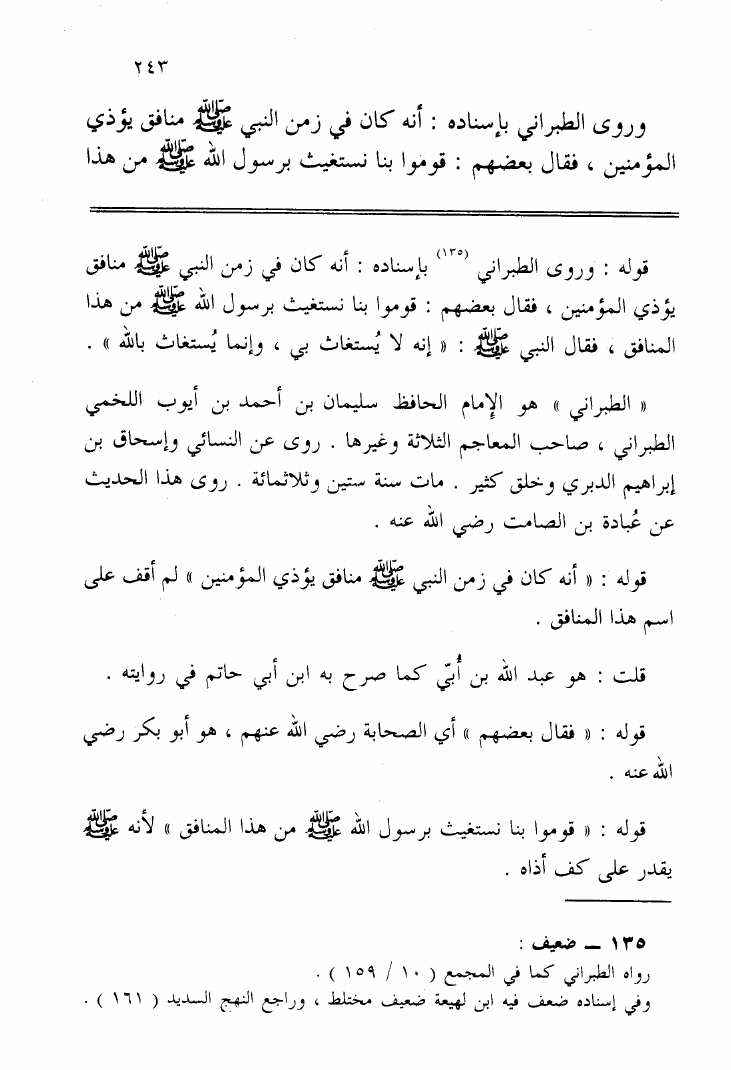 ٢٤٣
وروى الطبراني بإسناده : أنه كان في زمن النبي ﷺ منافق يؤذي
المؤمنين ، فقال بعضهم : قوموا بنا نستغيث برسول الله ﷺ من هذا
قوله : وروى الطبراني (١٣٥) بإسناده : أنه كان في زمن النبي ﷺ منافق
يؤذي المؤمنين ، فقال بعضهم : قوموا بنا نستغيث برسول الله ﷺ من هذا
المنافق ، فقال النبي ﷺ : « إنه لا يُستغاث بي ، وإنما يُستغاث بالله » .
« الطبراني » هو الإمام الحافظ سليمان بن أحمد بن أيوب اللخمي
الطبراني ، صاحب المعاجم الثلاثة وغيرها . روى عن النسائي وإسحاق بن
إبراهيم الدبري وخلق كثير . مات سنة ستين وثلاثمائة . روى هذا الحديث
عن عُبادة بن الصامت رضي الله عنه .
قوله : « أنه كان في زمن النبي ﷺ منافق يؤذي المؤمنين » لم أقف على
اسم هذا المنافق .
قلت : هو عبد الله بن أُبيّ كما صرح به ابن أبي حاتم في روايته .
قوله : « فقال بعضهم » أي الصحابة رضي الله عنهم ، هو أبو بكر رضي
الله عنه .
قوله : « قوموا بنا نستغيث برسول الله ﷺ من هذا المنافق » لأنه ﷺ
يقدر على كف أذاه .
١٣٥ ــ ضعيف :
رواه الطبراني كما في المجمع ( ١٠ / ١٥٩ ) .
وفي إسناده ضعف فيه ابن لهيعة ضعيف مختلط ، وراجع النهج السديد ( ١٦١ ) .